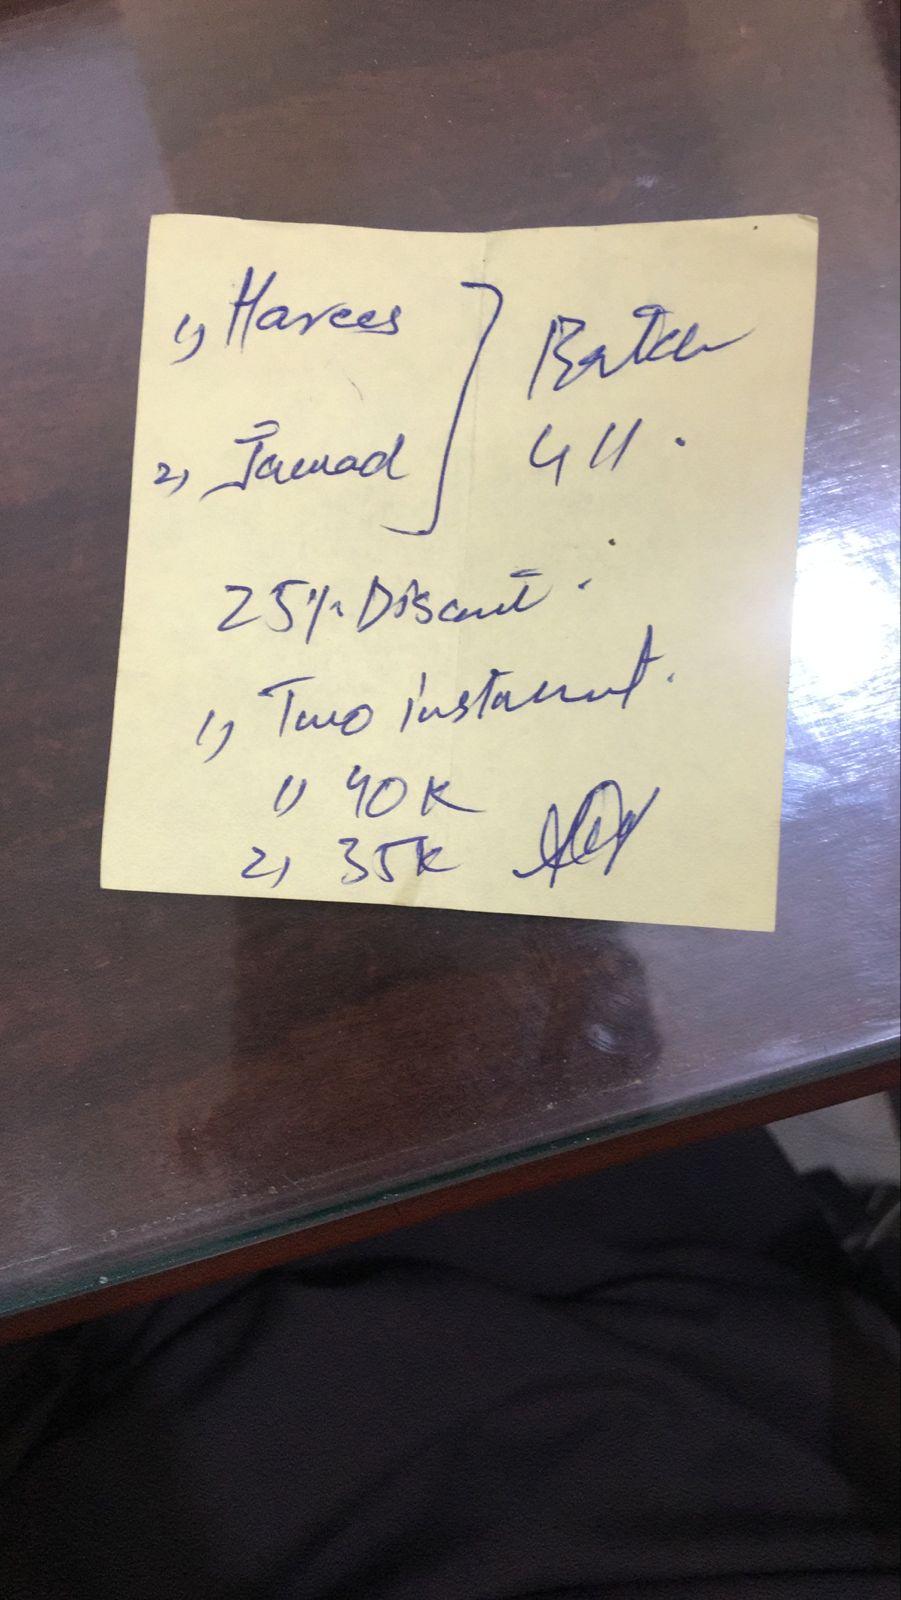 1) Harees
2) Jawad
Batch
411.
25% Discount.
1) Two instalment.
1) 40K
2) 35K